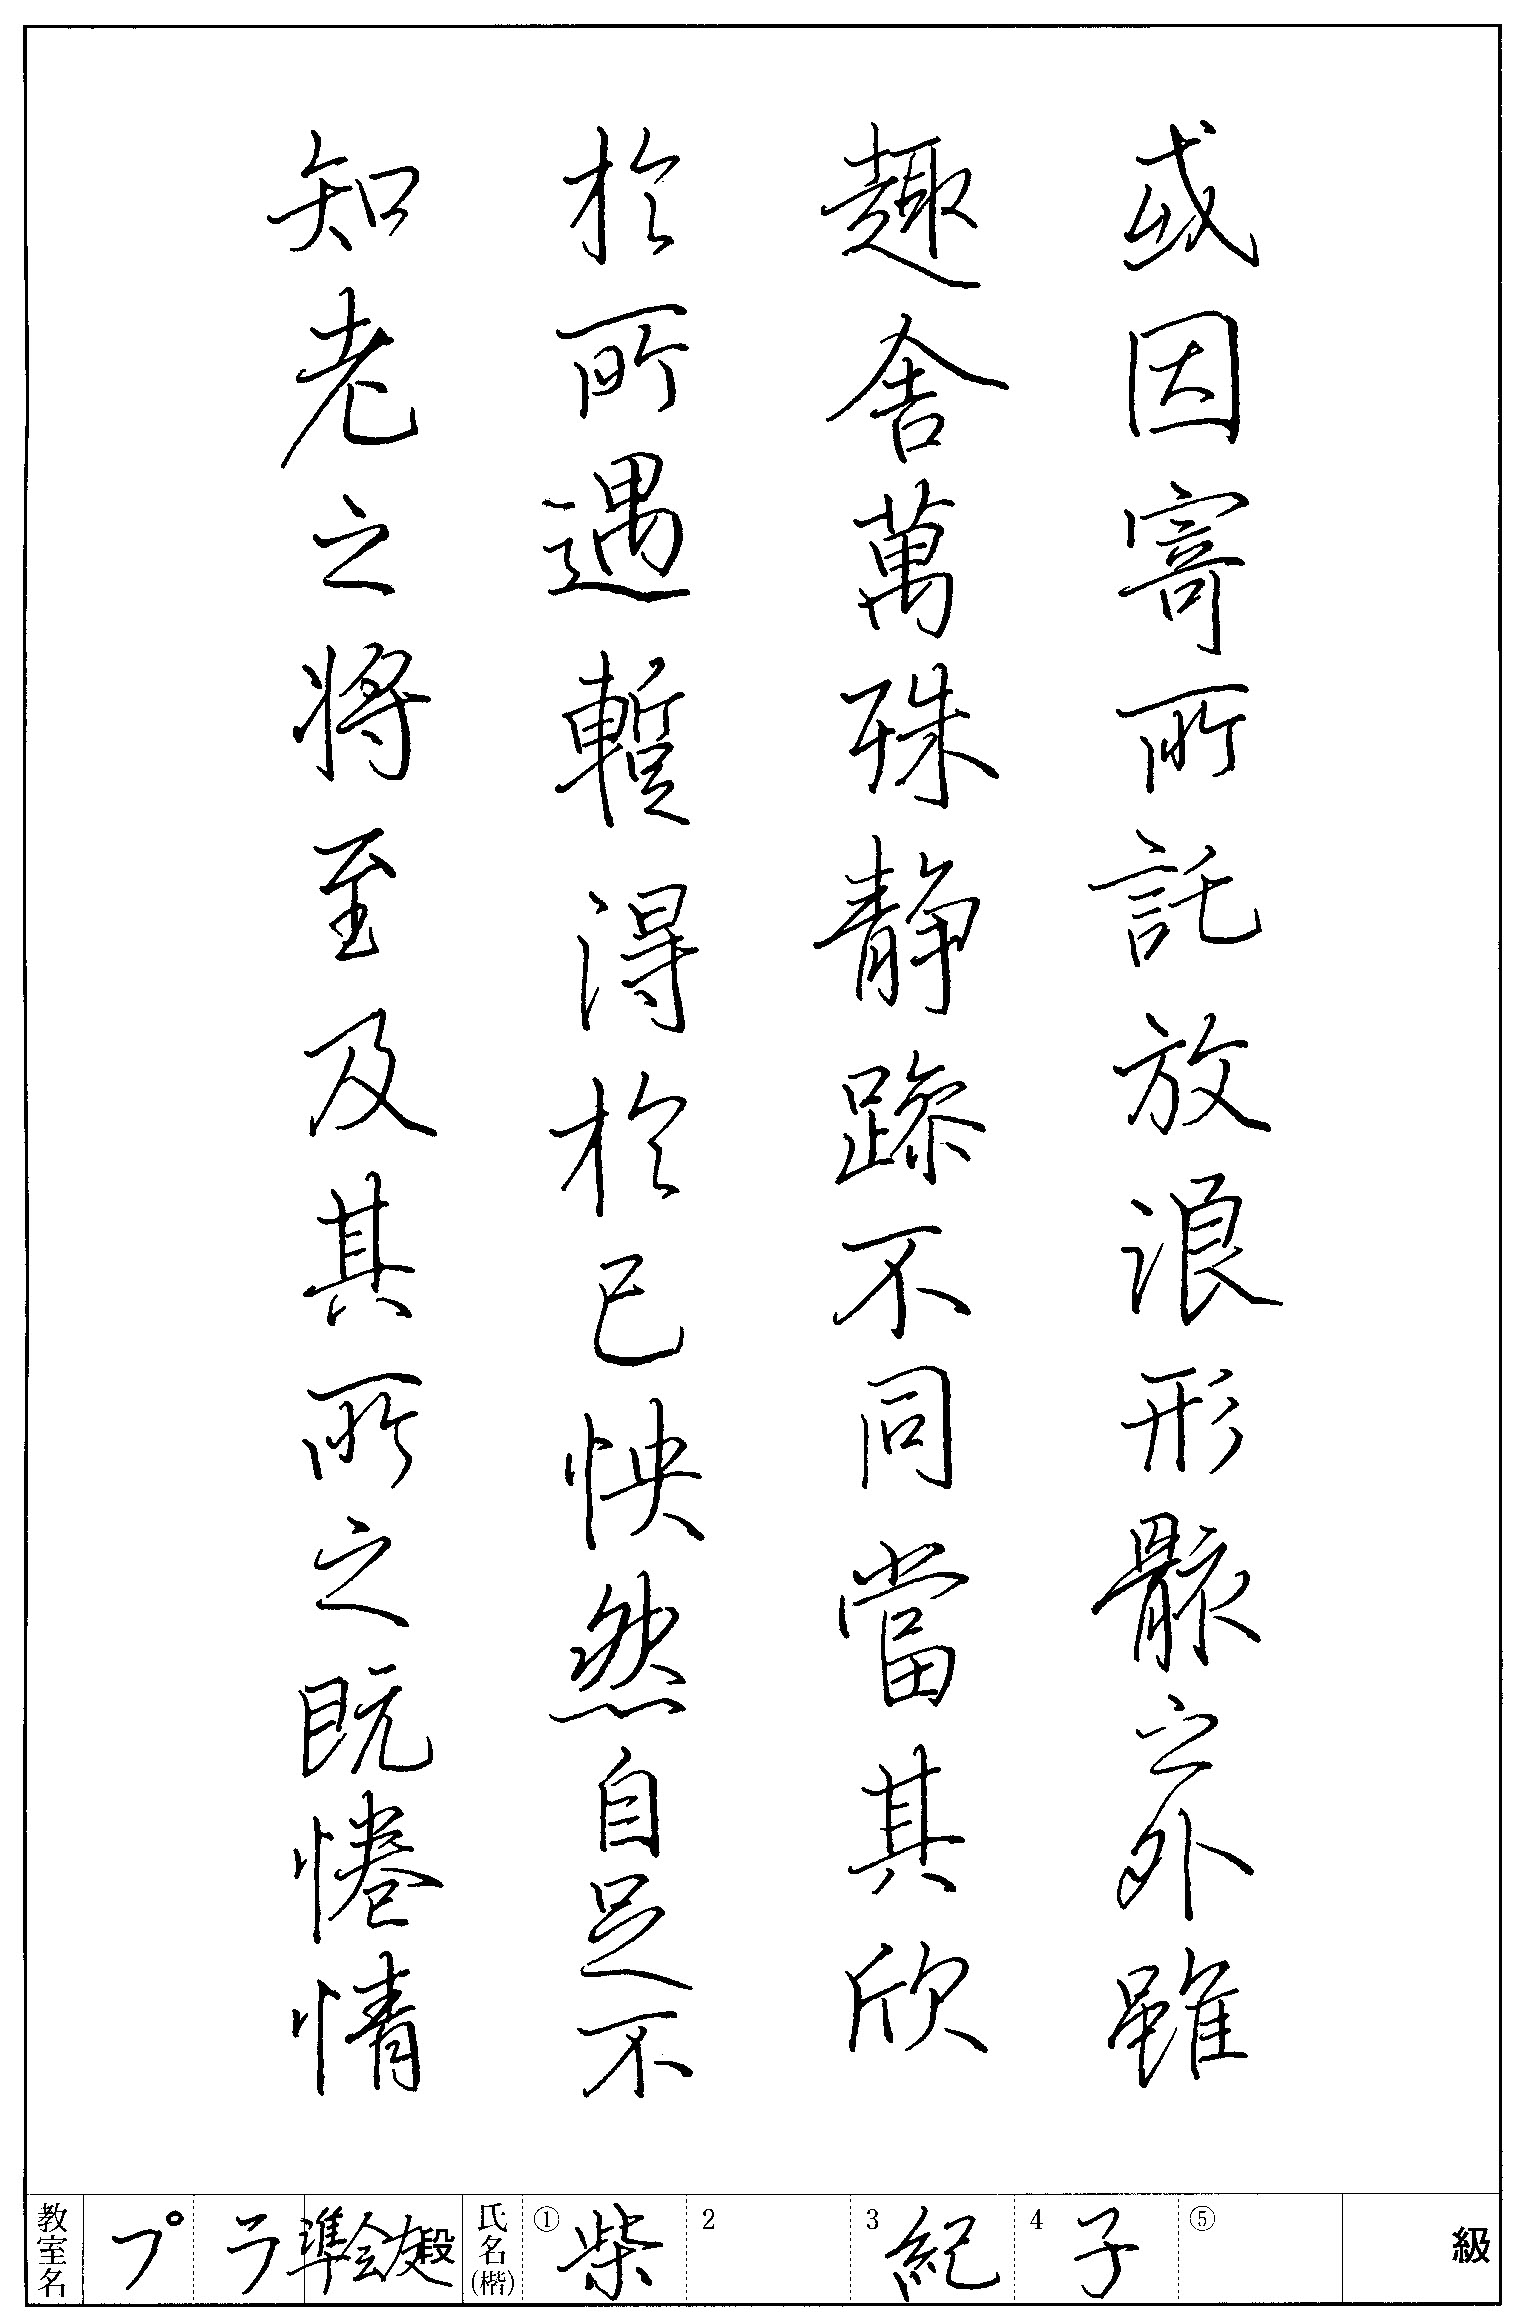 或因寄所託放浪形骸之外雖
趣舎萬殊静躁不同當其欣
於所遇蹔得於己怏然自足不
知老之将至及其所之既惓情
教室名 プラ 準会友 段 氏名(楷) ①柴 2 3紀 4子 ⑤ 級